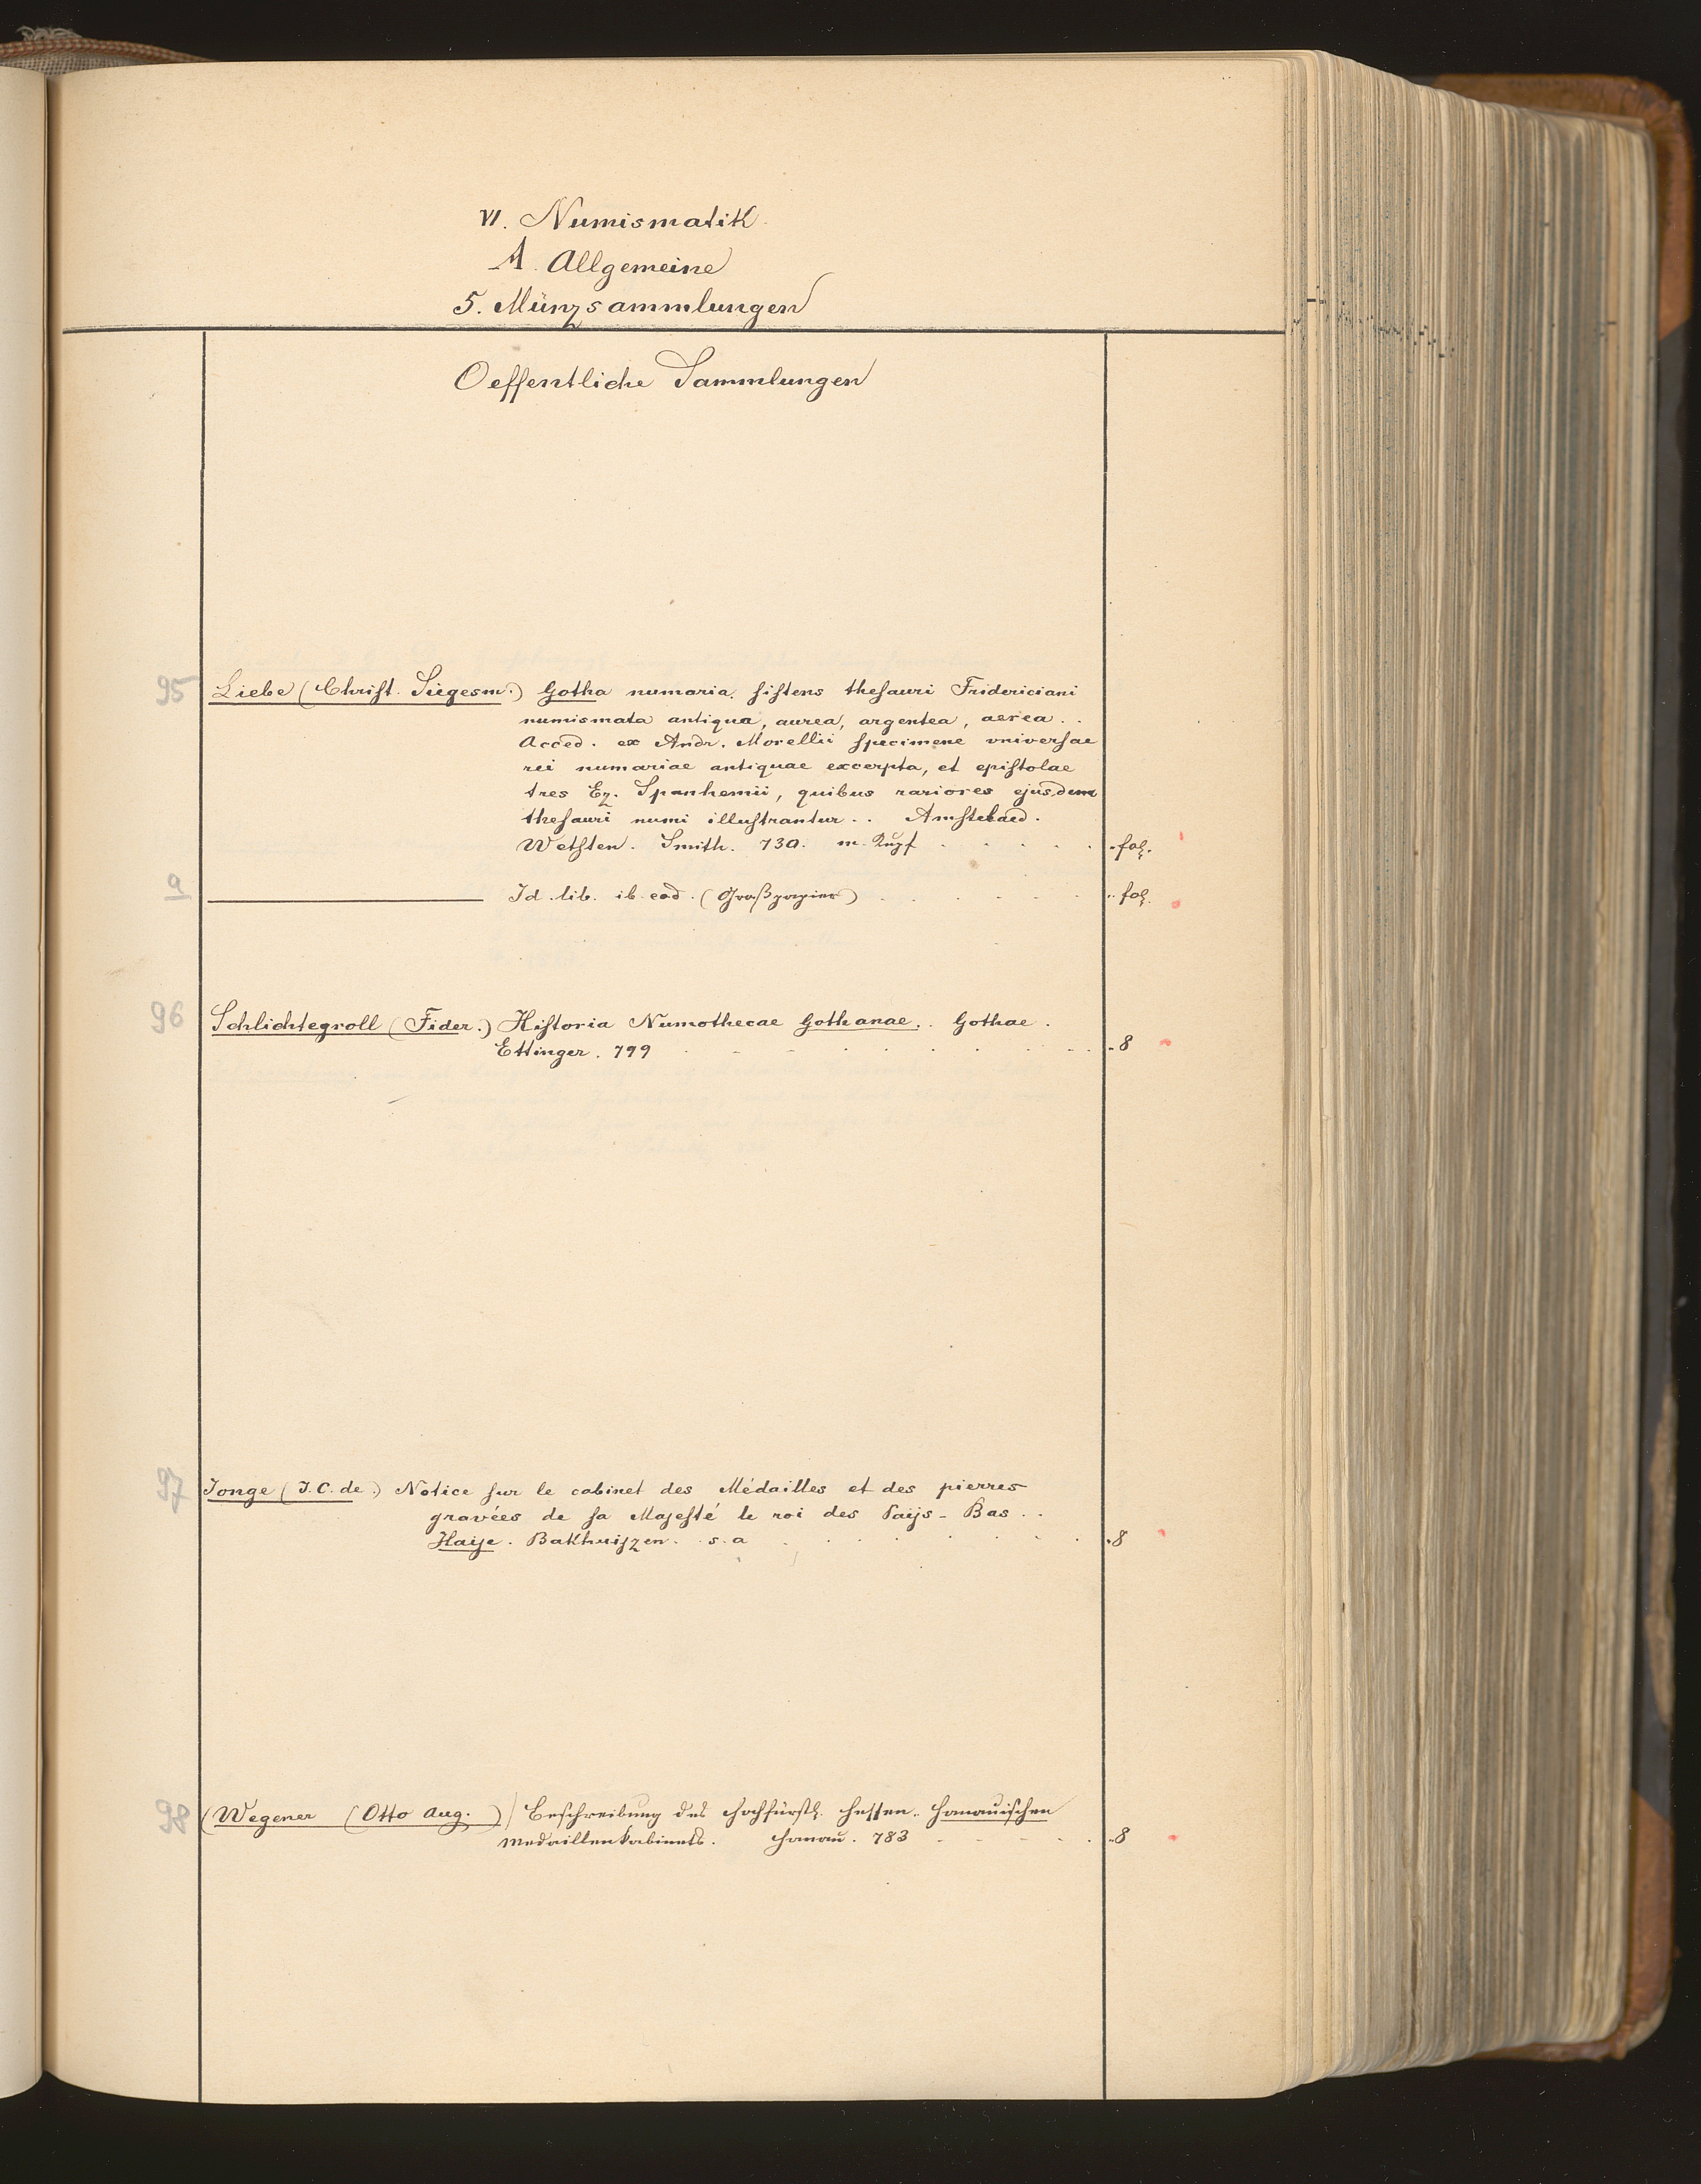 VI. Numismatik
A. Allgemeine
5. Münzsammlungen
Oeffentliche Sammlungen
95 Liebe (Christ. Siegesm.) Gotha numaria, sistens thesauri Fridericiani
numismata antiqua, aurea, argentea, aerea . .
Acced. ex Andr. Morellii specimene vniversae
rei numariae antiquae excerpta, et epistolae
tres Ez. Spanhemii, quibus rariores ejusdem
thesauri numi illustrantur . . Amstelaed.
Wetsten. Smith. 730. m. Kupf . . . . . fol.
a Id. lib. ib. eod. (Großpapier) . . . . . fol.
96 Schlichtegroll (Fider.) Historia Numothecae Gothanae. . Gothae.
Ettinger. 799 . . . . . 8
97 Jonge (J. C. de.) Notice sur le cabinet des Médailles et des pierres
gravées de sa Majesté le roi des Païjs-Bas . .
Haije. Bakhuijzen. s. a . . . . . 8
98 (Wegener (Otto Aug.) Beschreibung des Hochfürstl. Hessen-Hanauischen
Medaillenkabinets. Hanau. 783 . . . . . 8